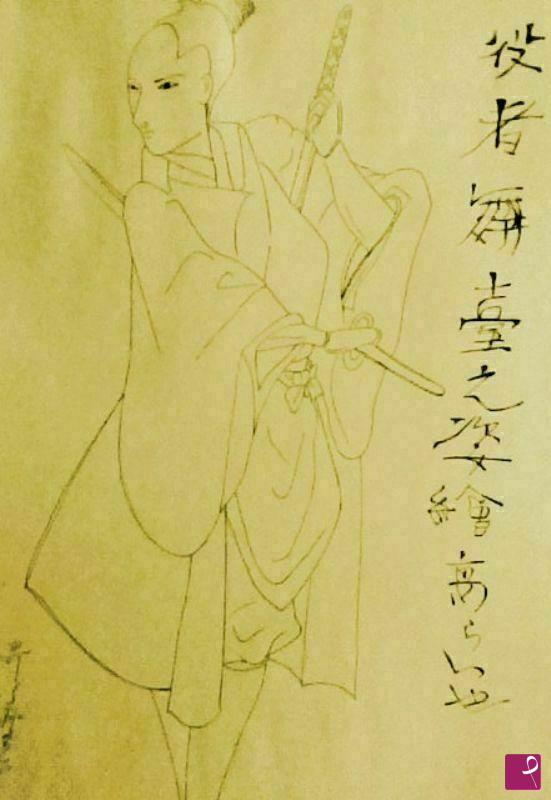 役者舞臺之姿繪高らいや